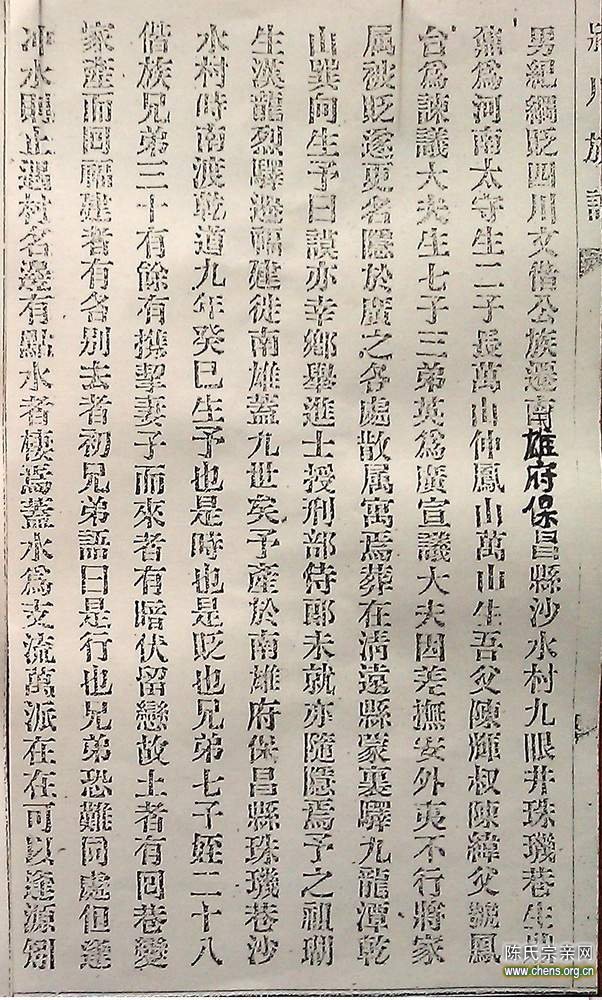 男紀綱貶四川文偕公族遷南雄府保昌縣沙水村九眼井珠璣巷生男
焦爲河南太守生二子長萬山仲鳳山萬山生吾父陳輝叔陳緯父號鳳
台爲諫議大夫生七子三弟英爲廣宣議大夫因差撫安外夷不行將家
属被貶遂更名隱於廣之各處散属寓焉葬在清遠縣蒙裏驛九龍潭乾
山巽向生予曰謨亦幸鄉舉進士授刑部侍郎未就亦隨隱焉予之祖瑚
生漢龍烈驛遊福建徙南雄蓋九世矣予產於南雄府保昌縣珠璣巷沙
水村時南渡乾道九年癸巳生予也是時也是貶也兄弟七子姪二十八
偕族兄弟三十有餘有攜挈妻子而來者有暗伏留戀故土者有回巷變
家產而回福建者有各別去者初兄弟語曰是行也兄弟恐難同處但逢
冲水則止遇村名邊有點水者棲焉蓋水爲支流萬派在在可以逢源別
族譜
陈氏宗亲网
www.chens.org.cn